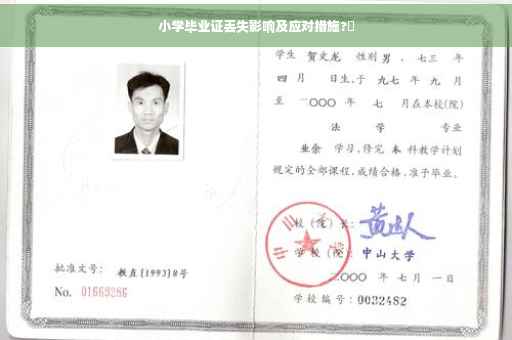 小学毕业证丢失影响及应对措施?
学生 贺文龙 性别 男 、七三 年
四 月 日生,于 九七 年 九 月
至 二〇〇〇 年 七 月在本校(院)
法 学 专业
业余 学习,修完 本 科教学计划
规定的全部课程,成绩合格,准予毕业。
校(院)长:
学校(院): 中山大学
二〇〇〇 年 七 月 一 日
学校编号: 0032482
批准文号: 教直(1993)8号
No. 01669286